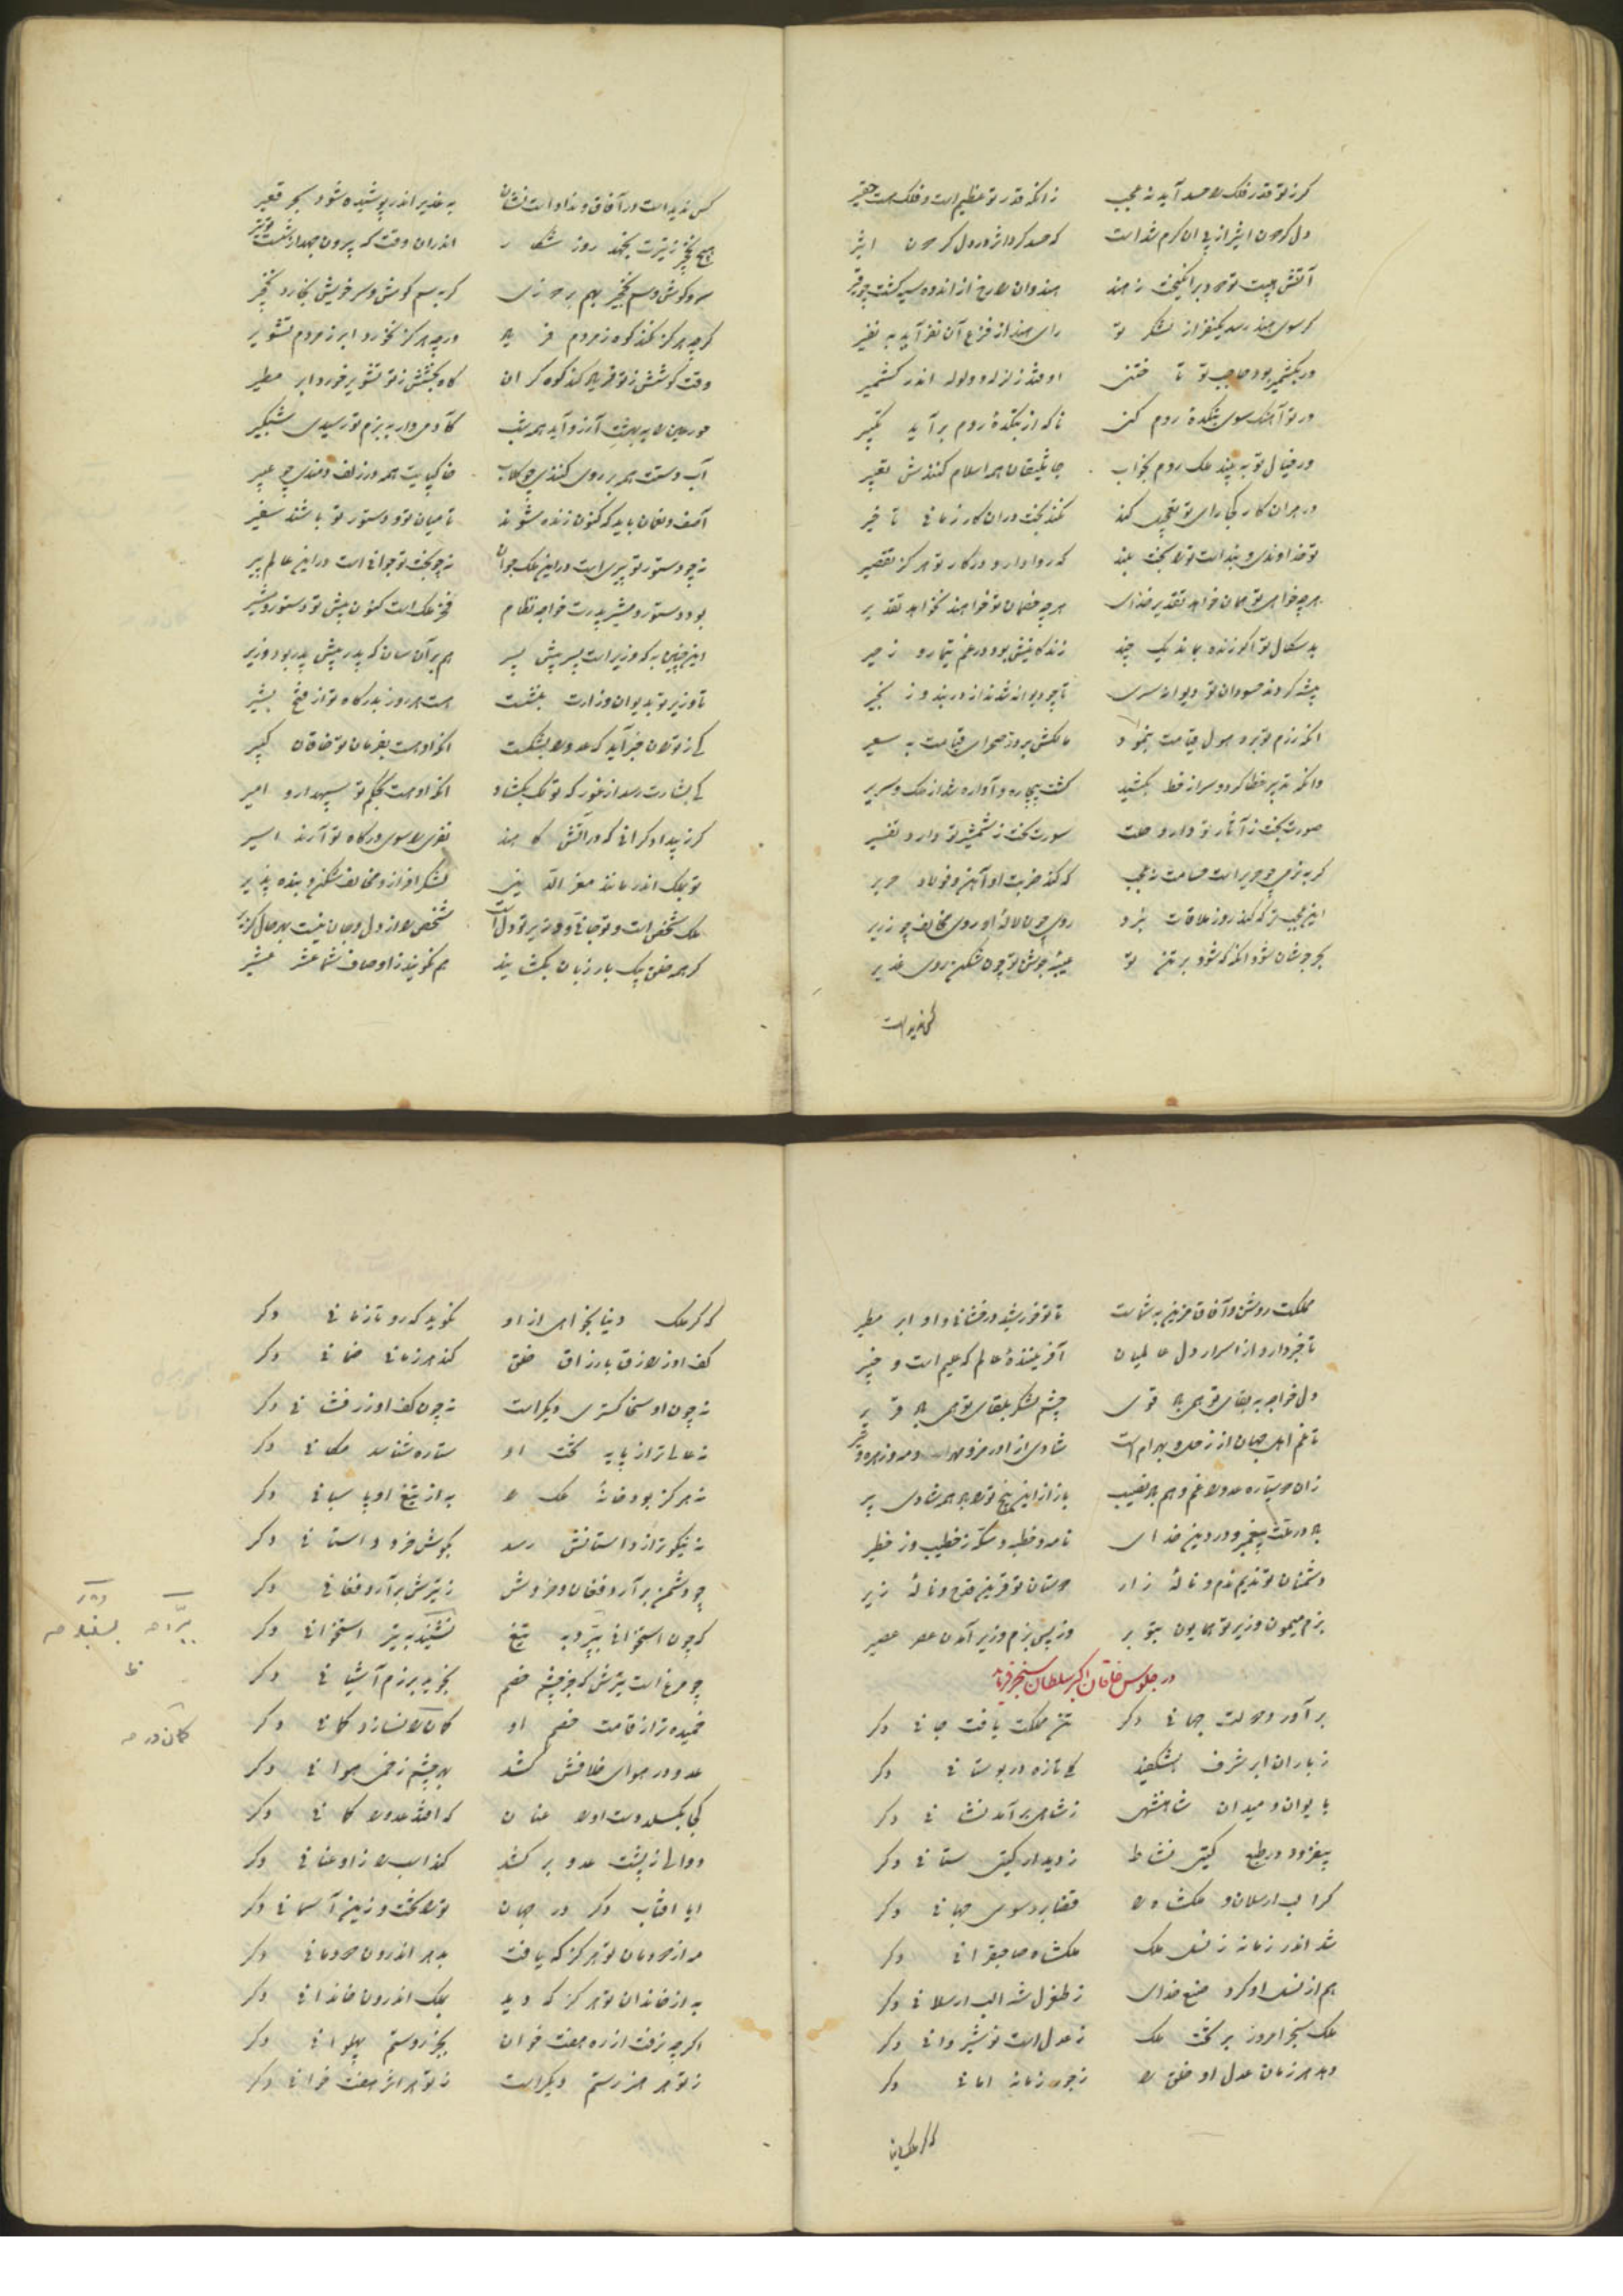 کر ز تو قدر فلک را حسد آید نه عجب زانکه قدر تو عظیم است و فلک هست حقیر
دل کردون اثیر از پی آن کرم شد است که حسد کرد اثر در دل کردون اثیر
کر سوی هند رسد یکنفر از لشکر تو رای هند از فزع آن نفر آید به نفیر
ور بکشمیر بود حاجب تو تا ختنی اوفتد زلزله و ولوله اندر کشمیر
ور تو آهنک سوی بتکدهٔ روم کنی ناکه از بتکدهٔ روم برآید تکبیر
ور خیال تو به بیند ملک روم بخواب جاثلیقان همه اسلام کنندش تعبیر
در هر آن کار کجا رای تو تعجیل کند نکند بخت در آن کار زمانی تاخیر
تو خداوندی و بنده است ترا بخت بلند که روا دارد در کار تو هرکز تقصیر
هرچه خواهی تو همان خواهد تقدیر خدای هرچه خصمان تو خواهند نخواهد تقدیر
بد سکال تو اکر زنده بماند یک چند زندکانیش بود در غم و تیمار و زحیر
پیشه کردند حسودان تو دیوانه سری تا چو دیوانه شدند از در بند و زنجیر
انکه رزم تو بدو هول قیامت بنمود مالکش برد ز صحرای قیامت به سعیر
وانکه تدبیر خطا کرد و سر از خط بکشید کشت بیچاره و آواره شد از ملک و سریر
صورت بخت ز آثار تو دارد سورت بخت ز شمشیر تو دارد تفسیر
کر به نرمی چو حریر است حسامت نه عجب که کند ضربت او آهن و فولاد حریر
این عجب تر که کند روز ملاقات نبرد روی چون لالهٔ او روی مخالف چو زریر
بحر جوشان شود انکه که شود بر تن تو عیبهٔ جوشن تو چون شکن روی غدیر
کس ندیدست
کس ندیدست در آفاق و نداد است نشان به غدیر اندر پوشیده شود بحر قعیر
هیچ نخجیر ز تیرت نجهد روز شکار اندران وقت که بیرون جهد از شستت تیر
کرچه هرکز نکند کوه ز مردم فریاد ورچه هرکز نخورد ابر ز مردم تشویر
وقت کوشش ز تو فریاد کند کوه کران کاه بخشش ز تو تشویر خورد ابر مطیر
حور عین را به بهشت آرزو آید همه شب کادمی وار به بزم تو رسیدی شبکیر
آب دستت همه بر روی کنندی چو کلاب خاک پایت همه در زلف دمندی چو عبیر
آصف و لقمان باید که کنون زنده شوند تا میان تو و دستور تو باشند سفیر
نه چو دستور تو پیری است در این ملک جوان نه چو بخت تو جوانی است در این عالم پیر
بود دستور و مشیر پدرت خواجه نظام فخر ملک است کنون پیش تو دستور و مشیر
این چنین به که وزیر است پسر پیش پسر هم بر آن سان که پدر پیش پدر بود وزیر
تا وزیر تو بدیوان وزارت بنشست هست هر روز بدرکاه تو از فتح بشیر
که ز توران خبر آید که عدو را بشکست انکه او هست بفرمان تو خاقان کبیر
که بشارت رسد از غور که تو ملک بکشاد انکه او هست بحکم تو سپهدار و امیر
ملک شخص است و تو جانی و وزیر تو دل است شخص را از دل و جان نیست بهر حال کزیر
کر همه خلق بیک بار زبان بکشایند هم نکویند ز اوصاف شما عشر عشیر
مملکت روشن و آفاق مزین به شماست تا تو خورشید درفشانی و او ابر مطیر
تا خبر دارد از اسرار دل عالمیان آفرینندهٔ عالم که علیم است و خبیر
دل خواجه به بقای تو همی باد قوی چشم لشکر بلقای تو همی باد قریر
تا غم اهل جهان از زحل و بهرام است شادی از اورمزد و مهر و مه و زهره و تیر
زان دو سیاره عدو را غم و هم باد نصیب باز از این پنج ترا باد همه شادی بر
باد در عقد پیغمبر و در دین خدای نامه و خطبه و سکه ز خطیب و ز خطیر
دشمنان تو ندیم ندم و نالهٔ زار دوستان تو قرین قدح و نالهٔ زیر
بزم میمون وزیر تو همایون بتو بر وز پس بزم وزیر آمدن عصر عصیر
در جلوس خاقان اکبر سلطان سنجر فرماید
برآورد دولت جهانی دکر تن مملکت یافت جانی دکر
ز باران ابر شرف بشکفید کلی تازه در بوستانی دکر
بایوان و میدان شاهنشهی ز شاهی برآمد نشانی دکر
بیفزود در طبع کیتی نشاط ز دیدار کیتی ستانی دکر
کر الب ارسلان و ملکشاه را قضا برد سوی جهانی دکر
شد اندر زمانه ز نسل ملک ملکشاه صاحبقرانی دکر
هم از نسل او کرد صنع خدای ز طغرل شه الب ارسلانی دکر
ملک سنجر امروز بر تخت ملک ز عدل است نوشیروانی دکر
دهد هر زمان عدل او خلق را ز جور زمانه امانی دکر
که کر ملک دنیا
که کر ملک دنیا بخواهی از او نکوید که رو تا زمانی دکر
کف راد او رزق بارزاق خلق کند هر زمانی ضمانی دکر
نه چون او سخا کستری دیکر است نه چون کف او زرفشانی دکر
نه عالی تر از پایه تخت او ستاره شناسد مکانی دکر
نه هرکز بود خانهٔ ملک را به از تیغ او پاسبانی دکر
نه نیکوتر از داستانش رسد بکوش خرد داستانی دکر
چو دشمن برآرد فغان و خروش ز تیرش برآرد فغانی دکر
که چون استخوانی ببرد به تیغ نشیند به تیر استخوانی دکر
چو مرغ است تیرش که جز چشم خصم نجوید برزم آشیانی دکر
خمیده تر از قامت خصم او کمان کر نسازد کمانی دکر
عدو در هوای خلافش کشد بهر چشم زخمی هوانی دکر
کجا بکسلد دست او را عنان که افتد عدو را کمانی دکر
دوالی ز پشت عدو بر کشد کند اسب را زو عنانی دکر
ایا افتاب دکر در جهان ترا تخت و زین آسمانی دکر
مه از دودمان تو هرکز که یافت بدهر اندرون دودمانی دکر
به از خاندان تو هرکز که دید بملک اندرون خاندانی دکر
اکرچه برفت از ره هفت خوان بجز رستم پهلوانی دکر
ز تو هر هنر رستم دیکر است ز تو هر اثر هفت خوانی دکر